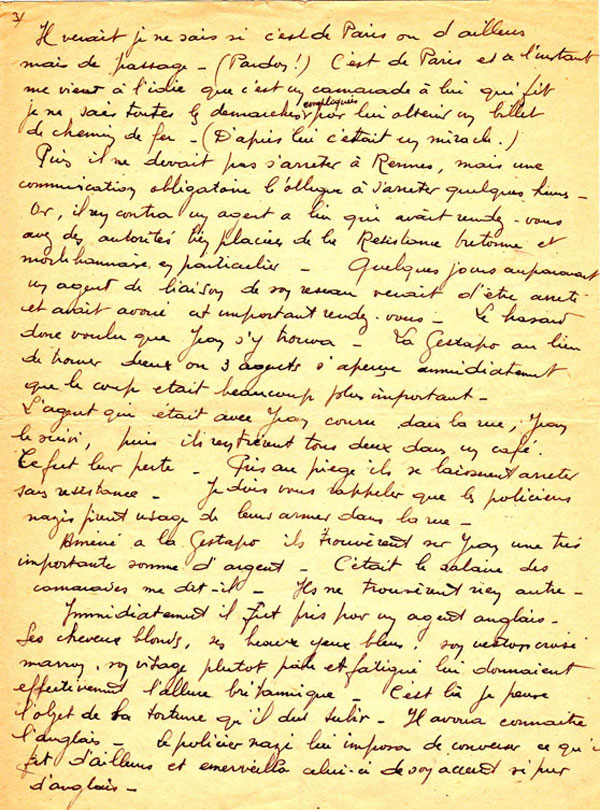 3/
Il venait je ne sais si c'est de Paris ou d'ailleurs
mais de passage - (Pardon!) C'est de Paris et à l'instant
me vient à l'idée que c'est un camarade à lui qui fit
je ne sais toutes les demarches compliquées pour lui obtenir un billet
de chemin de fer - (D'après lui c'était un miracle.)
Puis il ne devait pas s'arreter à Rennes, mais une
communication obligatoire l'obligea à s'arreter quelques heures -
Or, il rencontra un agent a lui qui avait rendez-vous
avec des autorités bien placées de la Resistance bretonne et
morbihannaise en particulier - Quelques jours auparavant
un agent de liaison de son reseau venait d'être arreté
et avait avoué cet important rendez-vous - Le hasard
donc voulu que Jean s'y trouva - La Gestapo au lieu
de trouver deux ou 3 agents s'aperçut immédiatement
que le coup etait beaucoup plus important -
L'agent qui etait avec Jean courru dans la rue, Jean
le suivi, puis ils rentrèrent tous deux dans un café.
Ce fut leur perte - Pris au piege ils se laisserent arreter
sans resistance - Je dois vous rappeler que les policiers
nazis firent usage de leurs armes dans la rue -
Amené a la Gestapo ils trouvèrent sur Jean une très
importante somme d'argent - C'était le salaire des
camarades me dit-il - Ils ne trouvèrent rien autre -
Immédiatement il fut pris pour un agent anglais -
Ses cheveux blonds, ses beaux yeux bleus, son veston croisé
marron, son visage plutot pâle et fatigué lui donnaient
effectivement l'allure britannique - C'est là je pense
l'objet de la torture qu'il dut subir - Il avoua connaitre
l'anglais - Le policier nazi lui imposa de converser ce qu'il
fit d'ailleurs et emerveilla celui-ci de son accent si pur
d'anglais -